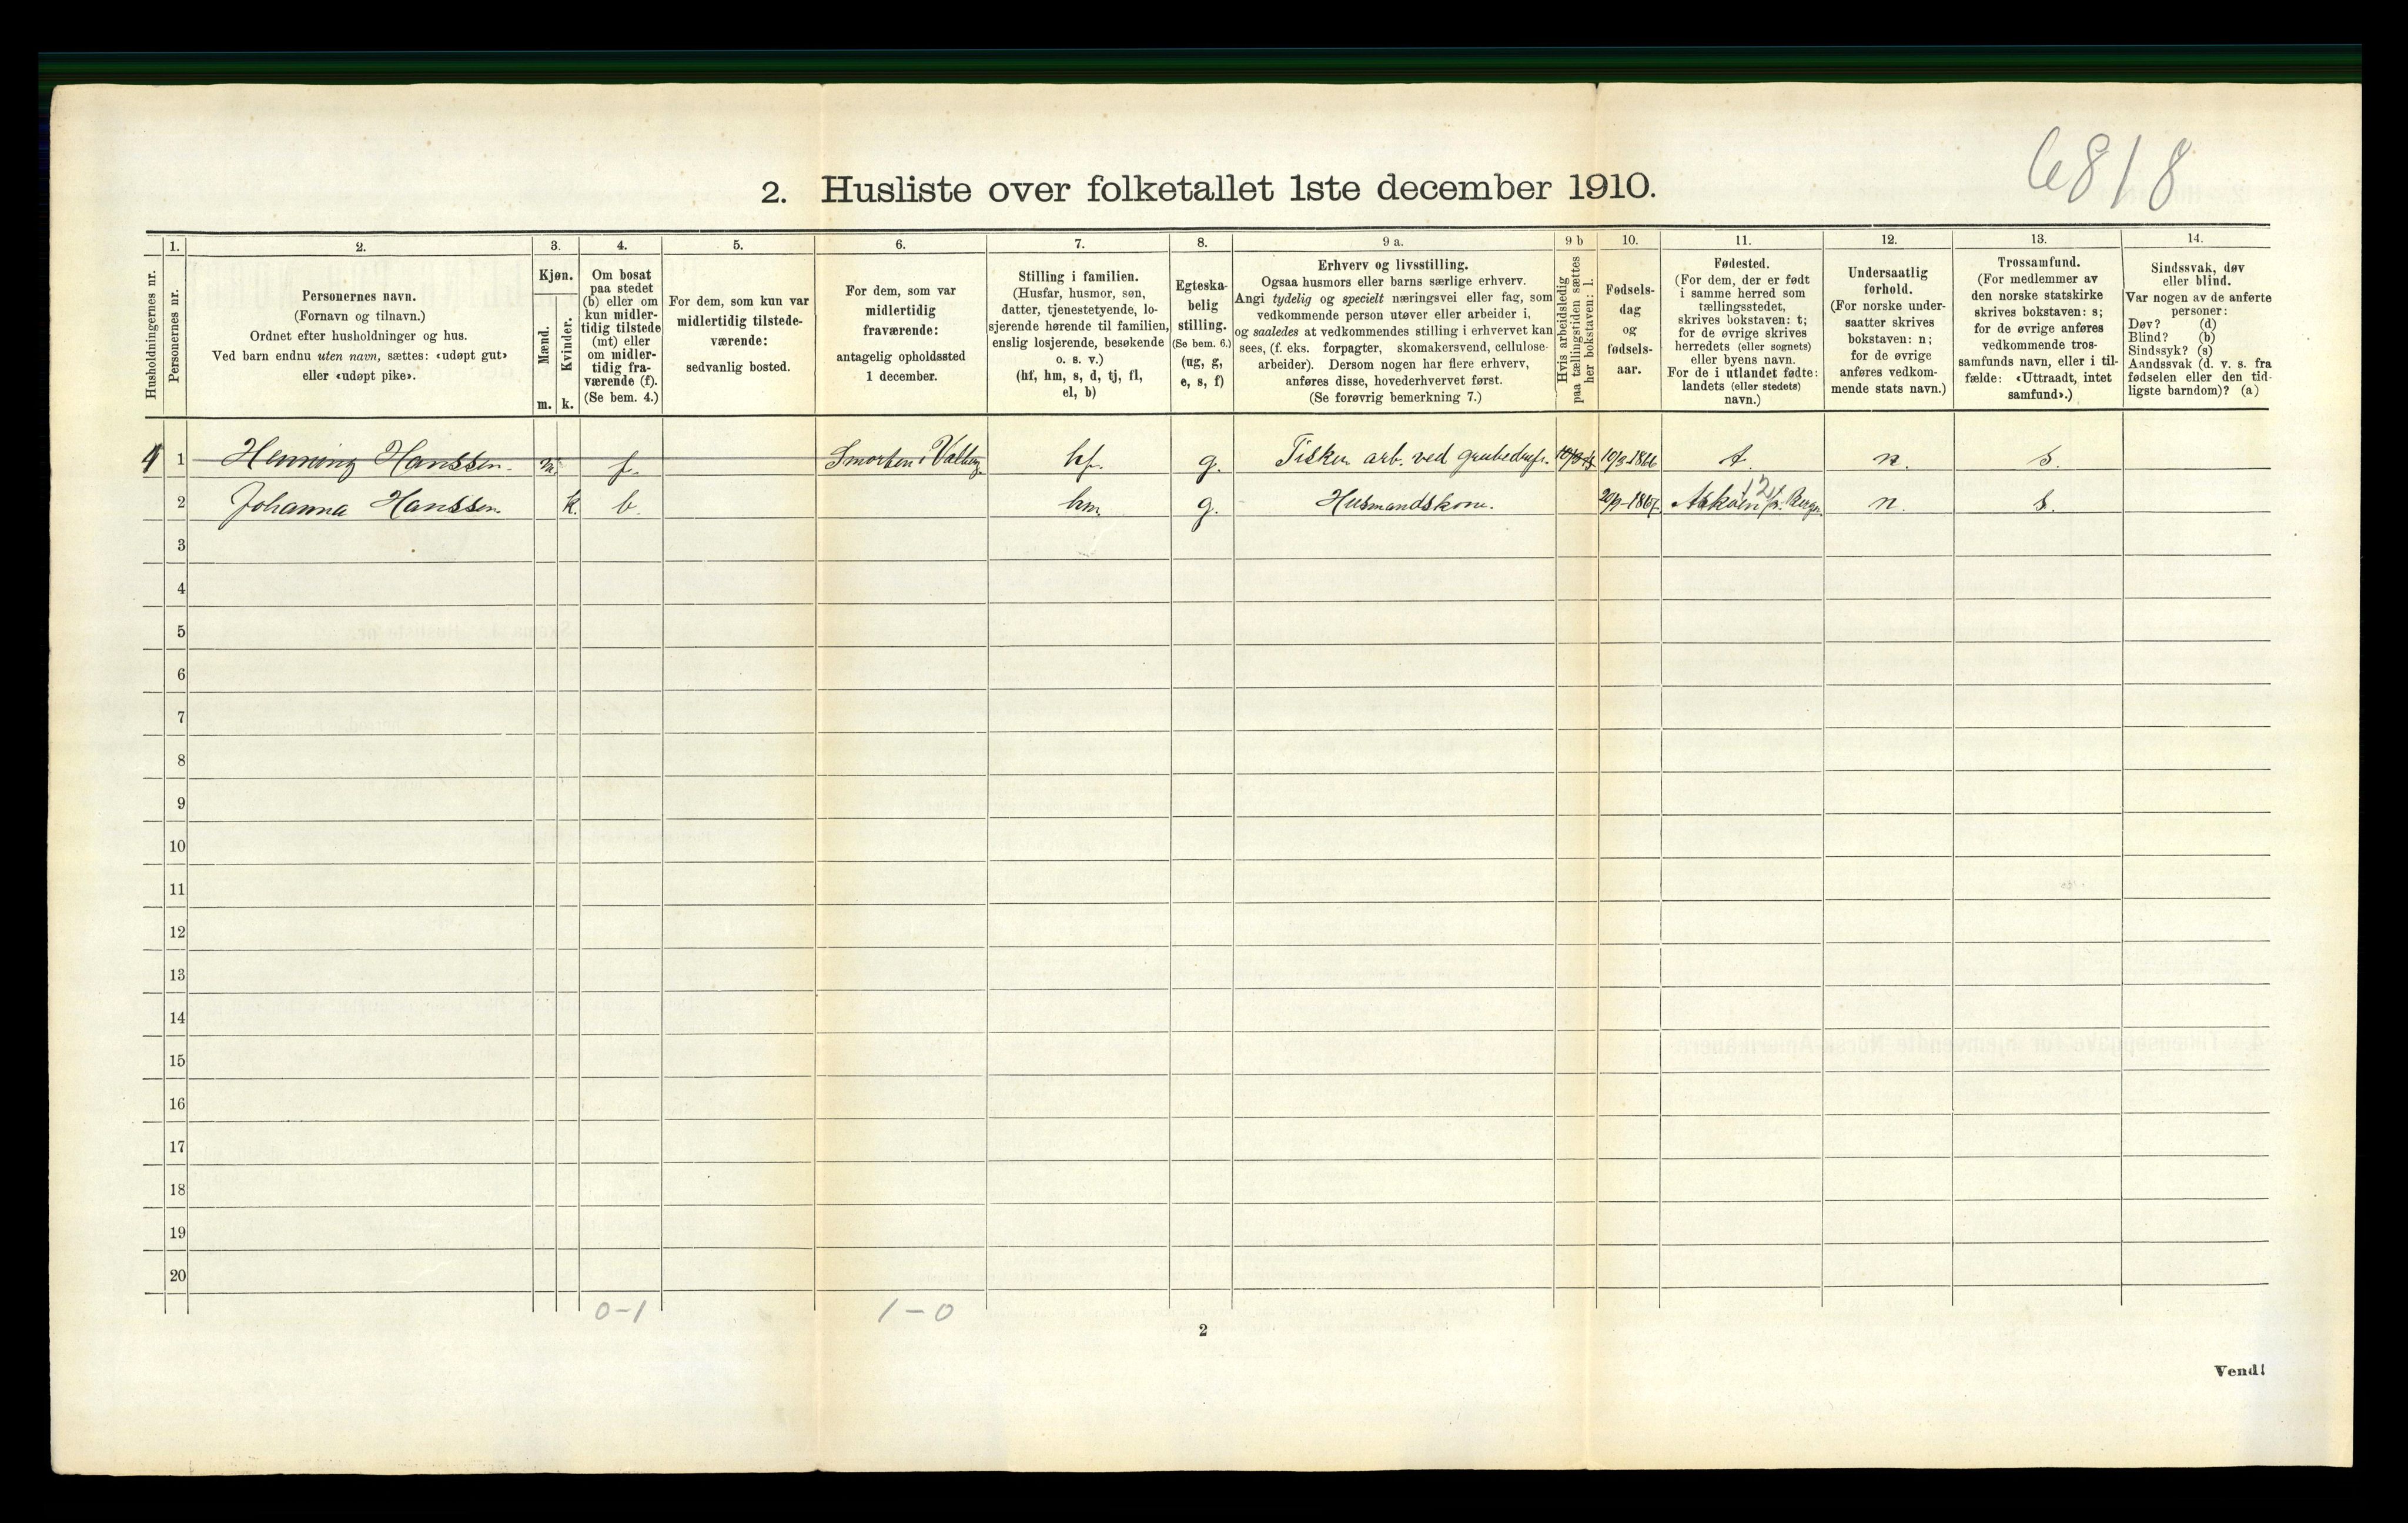 6818
2. Husliste over folketallet 1ste december 1910.
Husholdningernes nr.
1.
Personernes nr.
2.
Personernes navn.
(Fornavn og tilnavn.)
Ordnet efter husholdninger og hus.
Ved barn endnu uten navn, sættes: «udøpt gut»
eller «udøpt pike».
3.
Kjøn.
Mænd.
m.
Kvinder.
k.
4.
Om bosat
paa stedet
(b) eller om
kun midler-
tidig tilstede
(mt) eller
om midler-
tidig fra-
værende (f).
(Se bem. 4.)
5.
For dem, som kun var
midlertidig tilstede-
værende:
sedvanlig bosted.
6.
For dem, som var
midlertidig
fraværende:
antagelig opholdssted
1 december.
7.
Stilling i familien.
(Husfar, husmor, søn,
datter, tjenestetyende, lo-
sjerende hørende til familien,
enslig losjerende, besøkende
o. s. v.)
(hf, hm, s, d, tj, fl,
el, b)
8.
Egteska-
belig
stilling.
(Se bem. 6.)
(ug, g,
e, s, f)
9 a.
Erhverv og livsstilling.
Ogsaa husmors eller barns særlige erhverv.
Angi tydelig og specielt næringsvei eller fag, som
vedkommende person utøver eller arbeider i,
og saaledes at vedkommendes stilling i erhvervet kan
sees, (f. eks. forpagter, skomakersvend, cellulose-
arbeider). Dersom nogen har flere erhverv,
anføres disse, hovederhvervet først.
(Se forøvrig bemerkning 7.)
9 b
Hvis arbeidsledig
paa tællingstiden sættes
her bokstaven: l.
10.
Fødsels-
dag
og
fødsels-
aar.
11.
Fødested.
(For dem, der er født
i samme herred som
tællingsstedet,
skrives bokstaven: t;
for de øvrige skrives
herredets (eller sognets)
eller byens navn.
For de i utlandet fødte:
landets (eller stedets)
navn.)
12.
Undersaatlig
forhold.
(For norske under-
saatter skrives
bokstaven: n;
for de øvrige
anføres vedkom-
mende stats navn.)
13.
Trossamfund.
(For medlemmer av
den norske statskirke
skrives bokstaven: s;
for de øvrige anføres
vedkommende tros-
samfunds navn, eller i til-
fælde: «Uttraadt, intet
samfund».)
14.
Sindssvak, døv
eller blind.
Var nogen av de anførte
personer:
Døv? (d)
Blind? (b)
Sindssyk? (s)
Aandssvak (d. v. s. fra
fødselen eller den tid-
ligste barndom)? (a)
1 Henning Hanssen. m. f. Smorten i Valberg. hf. g. Fisker arb. ved grubedrift. 10/3-1866 t. n. s.
2 Johanna Hanssen. k. b. hm. g. Husmandskone. Askøen pr. Bergen. n. s.
12
3
4
5
6
7
8
9
10
11
12
13
14
15
16
17
18
19
20
0-1 1-0
2
Vend!